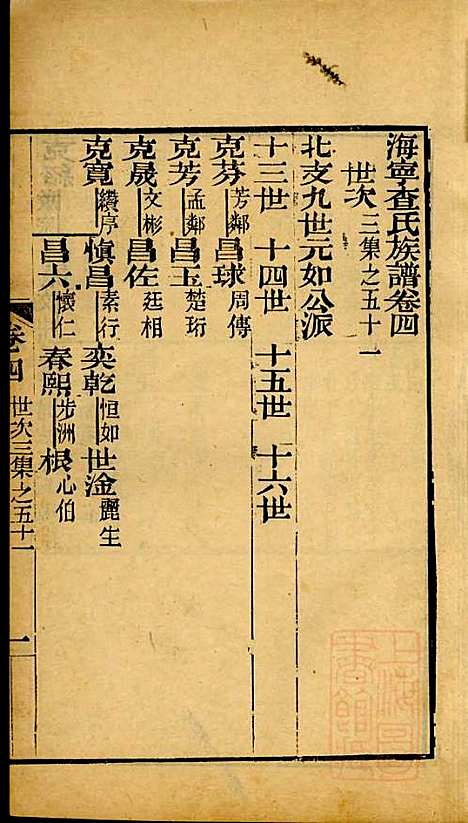 海寧查氏族譜卷四
世次三集之五十一
北支九世元如公派
十三世 十四世 十五世 十六世
克芬芳鄰 昌球周傳
克芳孟鄰 昌玉楚珩
克晟文彬 昌佐廷相
克寬纘序 愼昌素行 奕乾恒如 世淦麗生
昌六懷仁 春熙步洲 根心伯
卷四 世次三集之五十一 一